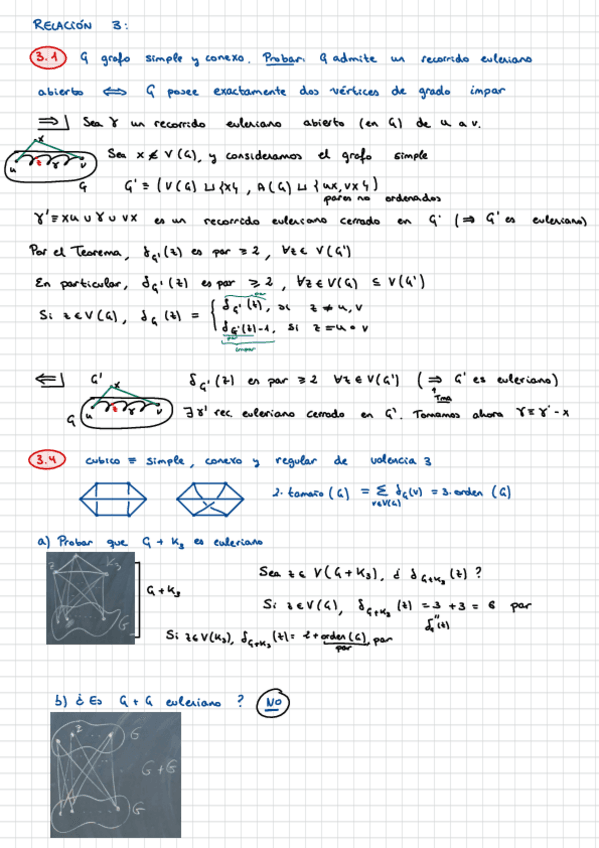 RELACIÓN 3:
3.1 G grafo simple y conexo. Probar: G admite un recorrido euleriano
abierto ⟺ G posee exactamente dos vértices de grado impar
⟹ Sea γ un recorrido euleriano abierto (en G) de u a v.
x
u γ v
G
Sea x ∉ V(G), y consideramos el grafo simple
G' = (V(G) ⊔ {x}, A(G) ⊔ {ux, vx})
pares no ordenados
γ' = xu ∪ γ ∪ vx es un recorrido euleriano cerrado en G' (⟹ G' es euleriano)
Por el Teorema, δG'(z) es par ≥ 2, ∀z ∈ V(G')
En particular, δG'(z) es par ≥ 2, ∀z ∈ V(G) ⊆ V(G')
Si z ∈ V(G), δG(z) = { δG'(z), si z ≠ u, v
par
δG'(z)-1, si z = u o v
par
impar
⟸ G' δG'(z) es par ≥ 2 ∀z ∈ V(G') (⟹ G' es euleriano)
Tma
x
G u γ v
∃ γ' rec. euleriano cerrado en G'. Tomamos ahora γ = γ' - x
3.4 cubico = simple, conexo y regular de valencia 3
2. tamaño (G) = Σ δG(v) = 3. orden (G)
v∈V(G)
a) Probar que G + K3 es euleriano
z K3
G
G + K3
Sea z ∈ V(G + K3), ¿ δG+K3 (z) ?
Si z ∈ V(G), δG+K3 (z) = 3 + 3 = 6 par
δG(z)
Si z ∈ V(K3), δG+K3 (z) = 2 + orden (G), par
par
b) ¿ Es G + G euleriano ? NO
z G
G + G
G